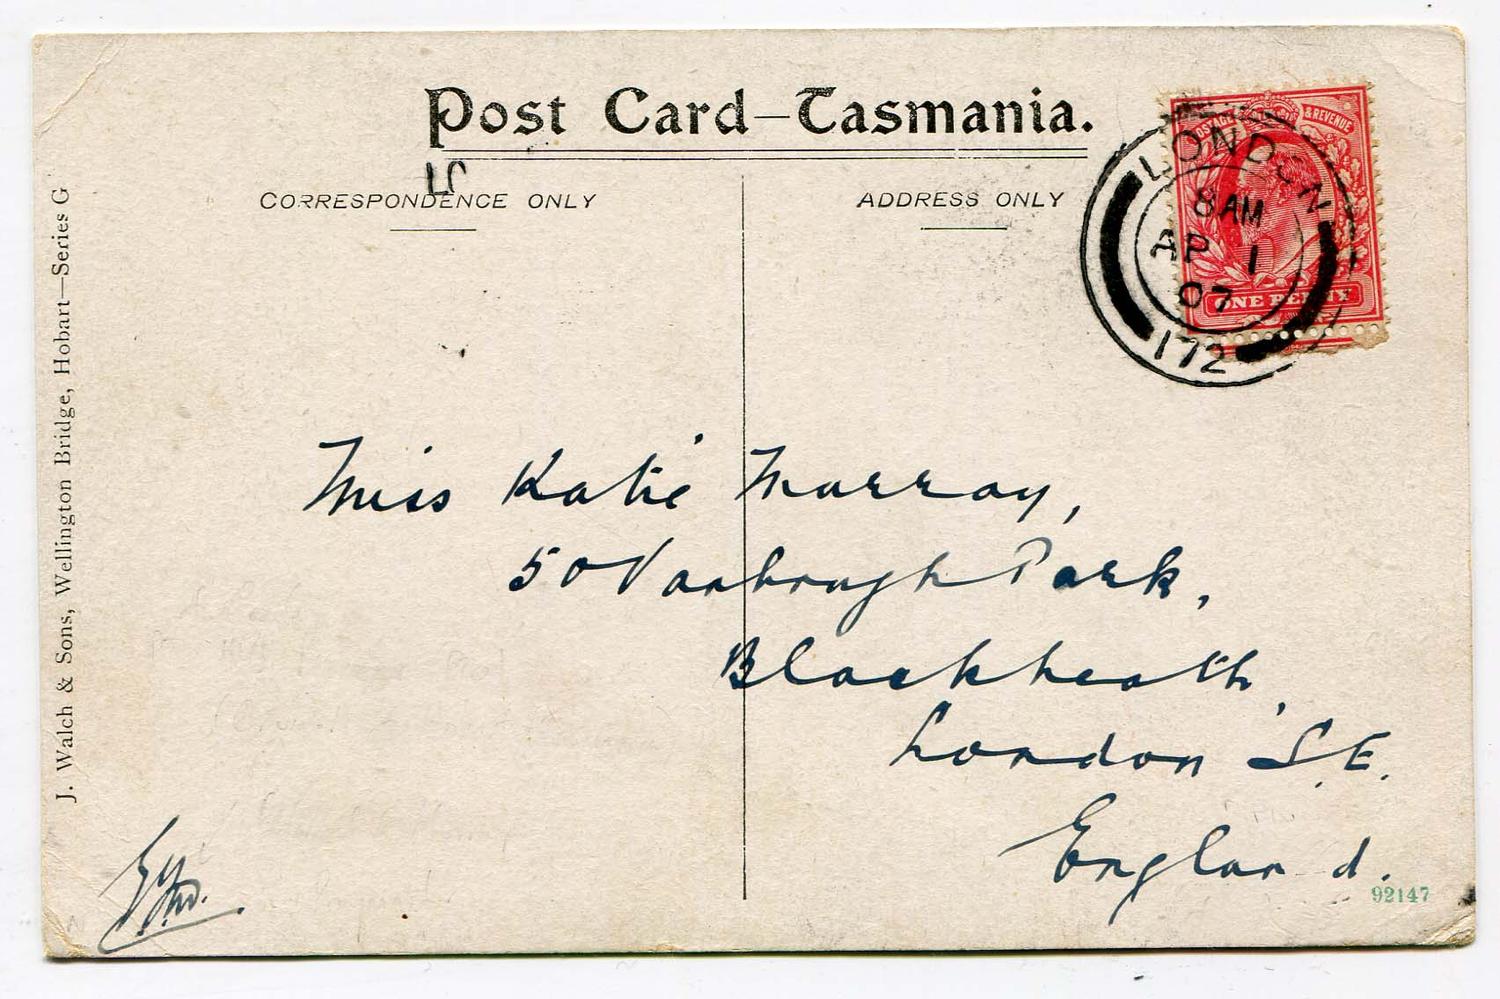 Post Card—Tasmania.
CORRESPONDENCE ONLY
ADDRESS ONLY
POSTAGE & REVENUE
ONE PENNY
LONDON
8 AM
AP 1
07
172
Miss Katie Murray,
50 Vanbrugh Park,
Blackheath,
London S.E.
England.
92147
J. Walch & Sons, Wellington Bridge, Hobart—Series G